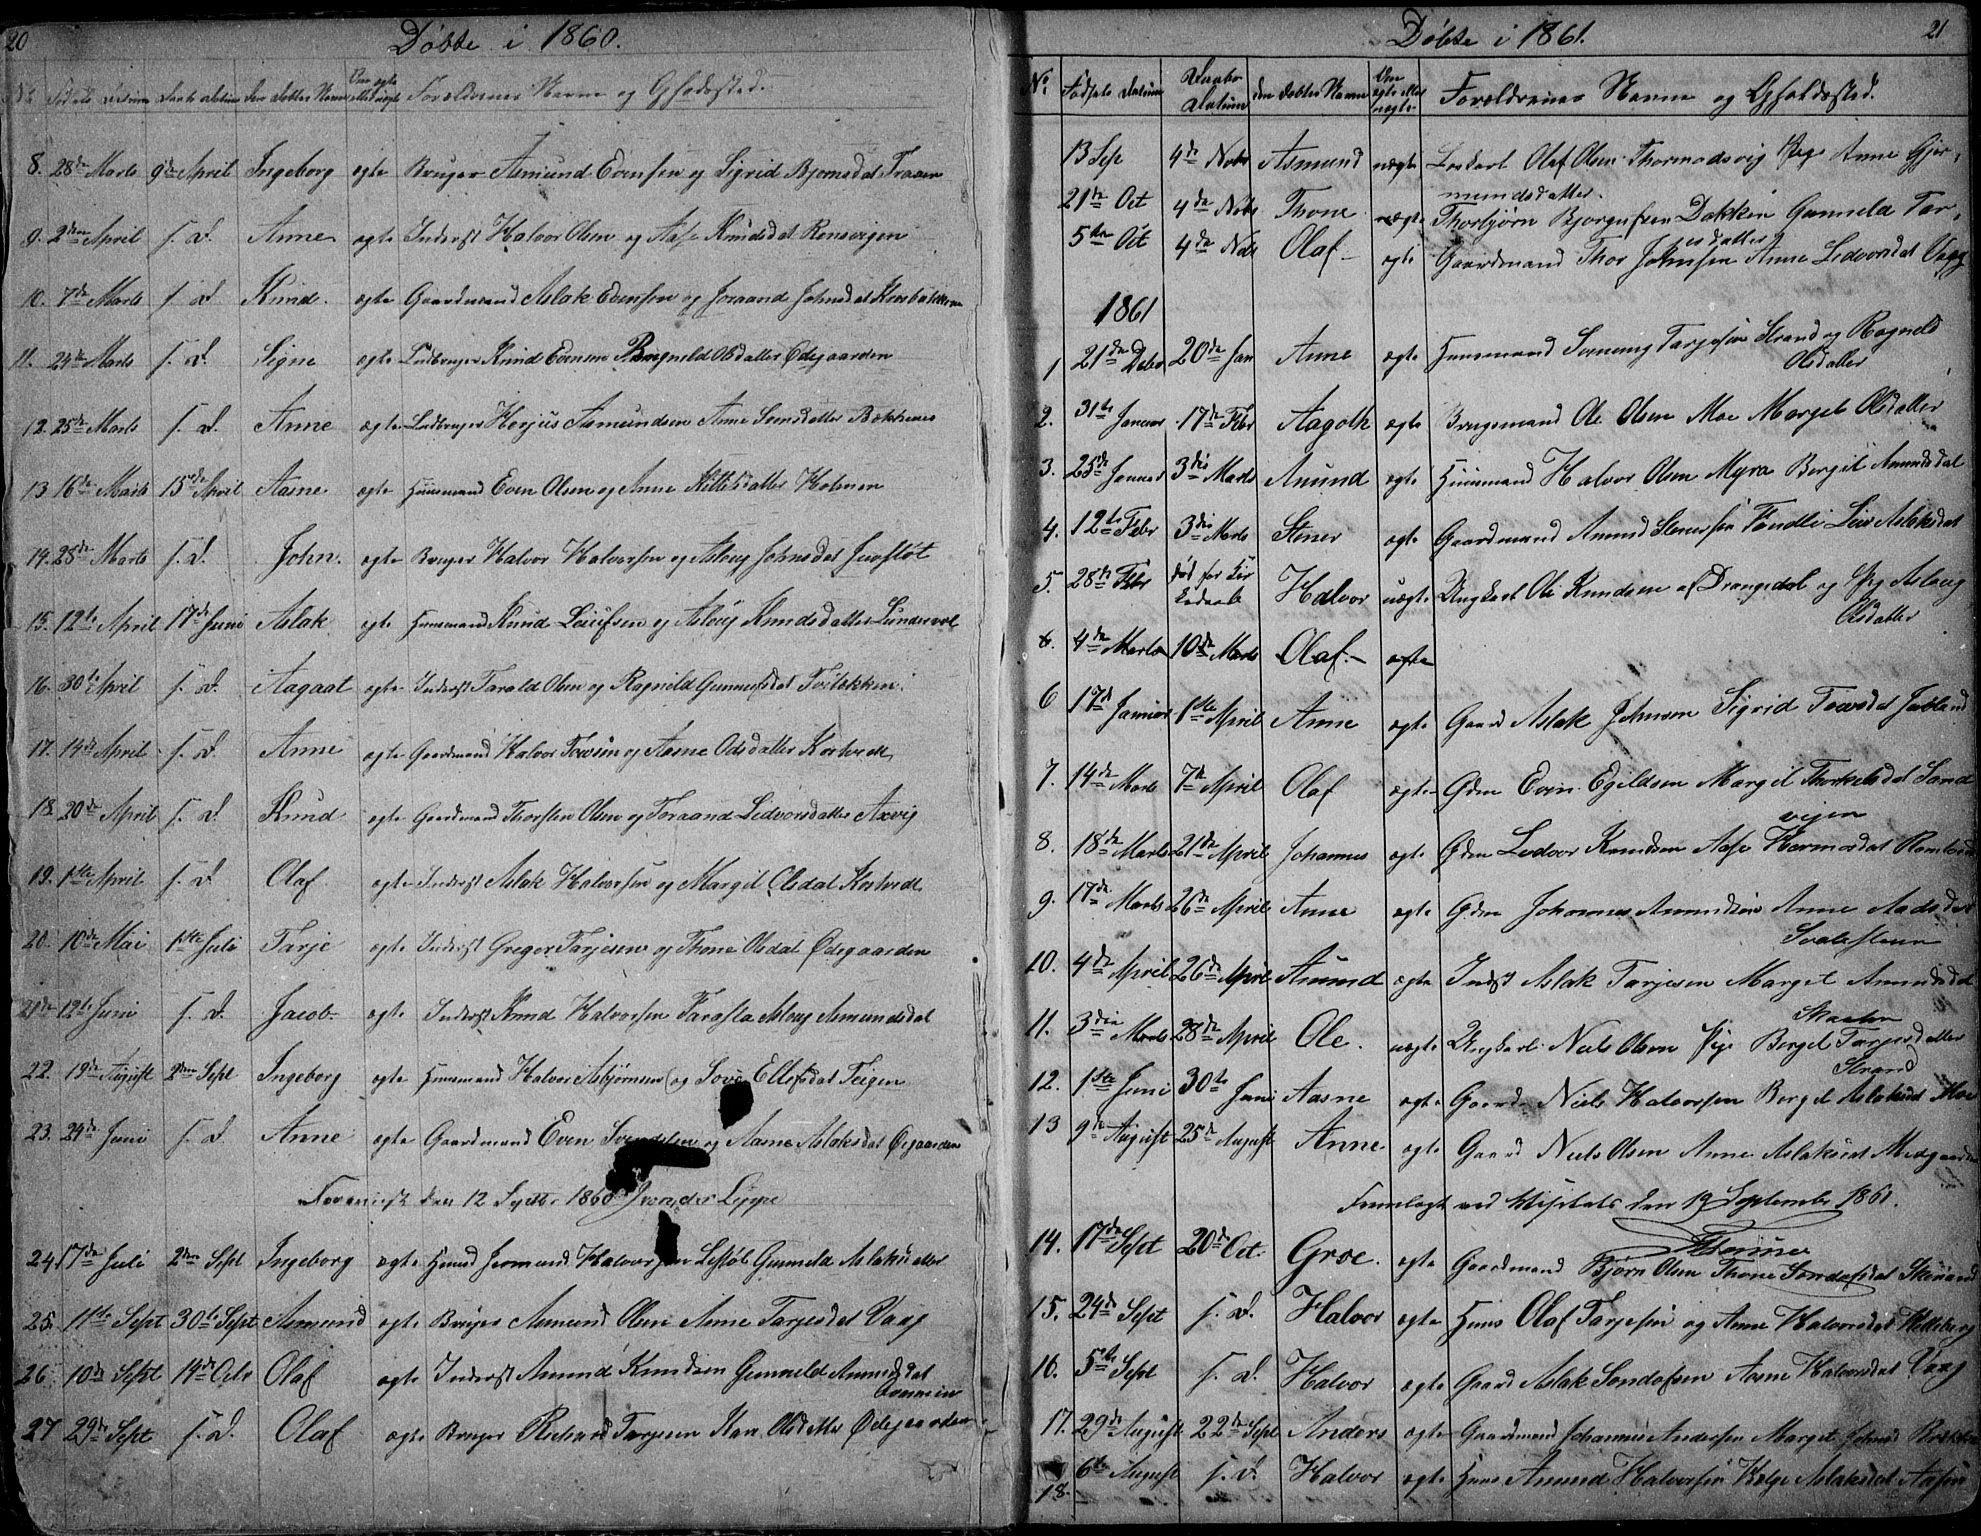 20
Døbte i 1860.
No Fødsels Datum Daab Datum Den Døbtes Navn Om ægte eller uægte Forældrenes Navne og Opholdssted.
8. 28de Marts 9de April Ingeborg ægte Bruger Asmund Evensen og Sigrid Bjørnsdat Traaen
9. 2den April s. d. Anne ægte Inderst Halvor Olsen og Aase Knudsdat Rensvigen
10. 7de Marts s. d. Knud ægte Gaardmand Aslak Evensen og Joraand Johnsdat
11. 24de Marts s. d. Signe ægte Ledbruger Knud Evensen Ragnild Olsdatter Ødegaarden
12. 25de Marts s. d. Anne ægte Ledbruger Herjus Asmundsen Anne
13 16de Marts 13de April Aasne ægte Huusmand Even Olsen og Anne Kittelsdatter Holmen
14. 28de Marts s. d. John. ægte Bruger Halvor Halvorsen og Aslaug Johnsdat
15. 12te April 17de Juni Aslak ægte Huusmand Knud Leufsen og Aslaug Knudsdatter Lundevol
16. 30te April s. d. Aagaat ægte Inderst Tarald Olsen og Ragnild Gunnufsdat
17. 14de April s. d. Anne ægte Gaardmand Halvor Tovsen og Aasne Olsdatter Kostvedt
18. 20de April s. d. Knud ægte Gaardmand Thorsten Olsen og Toraand Ledvorsdatter Axvig
19. 1ste April s. d. Olaf ægte Inderst Aslak Halvorsen og Margit Olsdat Kostvedt
20. 10de Mai 1ste Juli Tarje ægte Inderst Greger Tarjesen og Thone Olsdat Ødegaarden
21de 12te Juni s. d. Jacob ægte Inderst Knud Halvorsen Aslaug Asmundsdat
22. 19de August 2den Sept Ingeborg ægte Huusmand Halvor Asbjørnsen og Ellefsdat Teigen
23. 24de Juni s. d. Anne ægte Gaardmand Even Svendsen og Aasne Aslaksdat Øygaarden
Foreviist den 12 Septbr 1860
24. 17de Juli 2den Sept Ingeborg ægte Huusmd Halvorsen Gunneld Aslaksdatter
25. 11te Sept 30te Sept Asmund ægte Bruger Asmund Olsen Anne Tarjesdat Vaag
26 10de Sept 14de Octr Olaf ægte Inderst Amund Knudsen Gunneld Amundsdat
27 29de Sept s. d. Olaf ægte Bruger Rickard Tarjesen Olsdatter Ødegaarden
21
Døbte i 1861.
No. Fødsels Datum Daabs Datum den Døbtes Navn Om ægte eller uægte Forældrenes Navne og Opholdssted.
13 Sep 4de Nobr Asmund uægte Olaf Olsen Thormodsvig Pige Anne Gjer-
mundsdatter.
21de Oct 4de Nobr Thone uægte Thorbjørn Bjorgufsen Dokken Gunneld Tar-
jesdatter
5te Oct 4de Nobr Olaf ægte Gaardmand Thor Johnsen Anne Ledvorsdat Vaag
1861
1 21de Debr 20de Jan Anne ægte Huusmand Sveinung Tarjesen Strand og Ragneld
Olsdatter
2. 31te Januar 17de Febr Aagoth ægte Brugsmand Ole Olsen Moe Margit Olsdatter
3. 25de Januar 3die Marts Amund ægte Huusmand Halvor Olsen Myra Bergit Amundsdat
4. 12te Febr 3die Marts Stener ægte Gaardmand Amund Stenersen Liv Aslaksdat
5. 28de Febr Død for Kirkedaab Halvor uægte Ungkarl Ole Knudsen af Drangedal og Pig Aslaug
Olsdatter
6. 4de Marts 10de Marts Olaf ægte
6 17de Januar 1ste April Anne ægte Gaard Aslak Johnsen Sigrid Tovsdat Jubland
7. 14de Marts 7de April Olaf ægte Gdm Even Egildsen Margit Thorkelsdat Sand
vigen
8. 18de Marts 21de April Johannes ægte Gdm Ledvor Knudsen Aase Hermosdat
9. 17de Marts 26de April Anne ægte Gdm Johannes Amundsen Anne Aadsdat
10. 4de April 26de April Amund ægte Inderst Aslak Tarjesen Margit Amundsdat
11. 3die Marts 28de April Ole. uægte Ungkarl Niels Olsen Pige Bergit Tarjesdatter
Strand
12. 1ste Juni 30te Juni Aasne ægte Gaard. Niels Halvorsen Bergit Aslaksdat Moe
13 9de August 25de August Anne ægte Gaard Niels Olsen Anne Aslaksdat Midgaarden
Fremlagt ved Visitats den 19 September 1861.
14. 17de Sept 20de Oct. Groe. ægte Gaardmand Bjørn Olsen Thone Sondofsdat
15. 24de Sept s. d. Halvor ægte Huus Olaf Tarjesen og Anne Halvorsdat
16. 5te Sept s. d. Halvor ægte Gaard Aslak Sondofsen Aasne Halvorsdat Vaag
17. 29de August 22de Sept Anders ægte Gaardmand Johannes Andersen Margit Johnsd
18. 6te August s. d. Halvor ægte Huus Amund Halvorsen Helge Aslaksdat Aasen